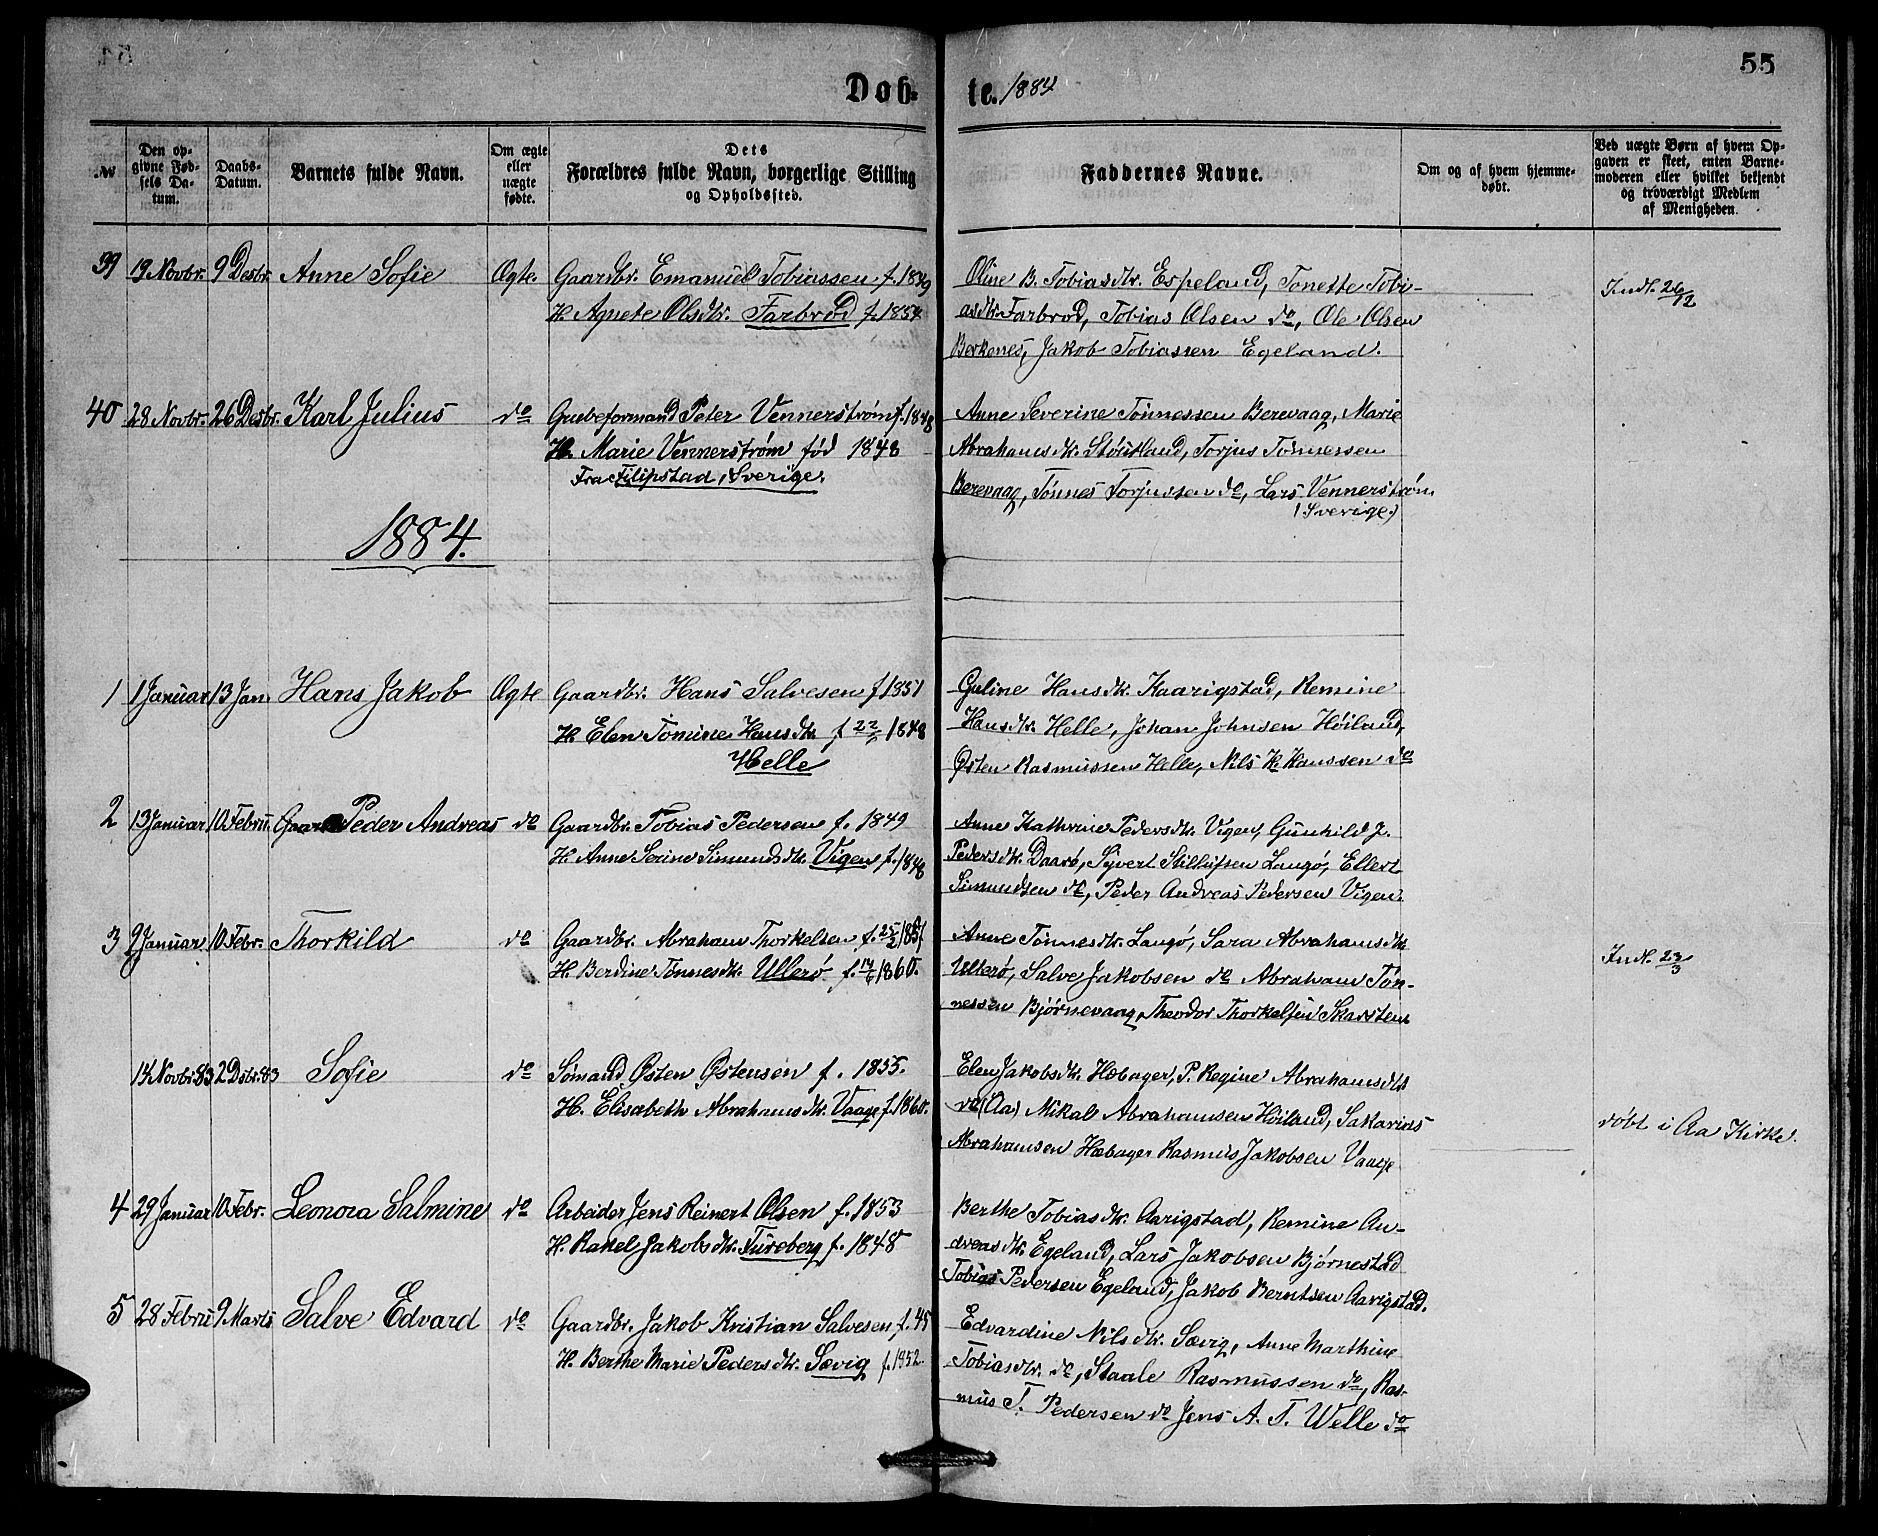 Døb-te. 1884
55
№
Den op-
givne Fød-
sels Da-
tum.
Daabs-
Datum.
Barnets fulde Navn.
Om ægte
eller
uægte
fødte.
Dets
Forældres fulde Navn, borgerlige Stilling
og Opholdssted.
Faddernes Navne.
Om og af hvem hjemme-
døbt.
Ved uægte Børn af hvem Op-
gaven er skeet, enten Barne-
moderen eller hvilket bekjendt
og troværdigt Medlem
af Menigheden.
39 19 Novbr. 9 Desbr. Anne Sofie Ægte. Gaardbr. Emanuel Tobiassen f. 1849
H. Agnete Olsdtr. Farbrød f. 1854
Oline B. Tobiasdtr. Espeland, Tonette Tobi-
asdtr. Farbrød, Tobias Olsen do, Ole Olsen
Berkenes, Jakob Tobiassen Egeland.
Indl. 26/12
40 28 Novbr. 26 Desbr. Karl Julius do Grubeformand Peter Vennerstrøm f. 1848
H. Marie Vennerstrøm fød 1848
Fra Filipstad, Sverige.
Anne Severine Tønnessen Berevaag, Marie
Abrahamsdtr. Støutland, Torjus Tønnessen
Berevaag, Tønnes Torjussen do, Lars Vennerstrøm
(Sverige)
1884.
1 1 Januar 13 Jan. Hans Jakob Ægte Gaardbr. Hans Salvesen f 1851
H. Elen Tomine Hansdtr. f 22/ 1848
Helle
Guline Hansdtr. Kaarigstad, Remine
Hansdtr. Helle, Johan Johnsen Høiland,
Østen Rasmussen Helle, Nils H. Hanssen do
2 13 Januar 10 Febru. Peder Andreas do Gaardbr. Tobias Pedersen f. 1849
H. Anne Serine Simundsdtr. Vigen f. 1848
Anne Kathrine Pedersdtr. Vigen, Gunhild J.
Pedersdtr. Daarø, Syvert Stillufsen Langø, Ellert
Simundsen do, Peder Andreas Pedersen Vigen.
3 9 Januar 10 Febr. Thorkild do Gaardbr. Abraham Thorkelsen f. 25/2 1851
H. Berdine Tønnesdtr. Ullerø f. 14/6 1860.
Anne Tønnesdtr. Langø, Sara Abrahamsdtr.
Ullerø, Salve Jakobsen do Abraham Tøn-
nessen Bjørnevaag, Theodor Thorkelsen Skarsten
Indl. 23/3
14 Novbr. 83 2 Dsbr. 83 Sofie do Sømand Østen Østensen f. 1855.
H. Elisabeth Abrahamsdtr. Vaage f. 1860.
Elen Jakobsdtr. Hæbager, P. Regine Abrahamsdtr.
do (Aa) Mikal Abrahamsen Høiland, Sakarias
Abrahamsen Hæbager Rasmus Jakobsen Vaage
døbt i Aa Kirke.
4 29 Januar 10 Febr. Leonora Salmine do Arbeider Jens Reinert Olsen f. 1853
H. Rakel Jakobsdtr. Tureberg f. 1848
Berthe Tobiasdtr. Aarigstad, Remine An-
dreasdtr. Egeland, Lars Jakobsen Bjørnestad
Tobias Pedersen Egeland, Jakob Berntsen Aarigstad.
5 28 Febru 9 Marts Salve Edvard do Gaardbr. Jakob Kristian Salvesen f. 45
H. Berthe Marie Pedersdtr. Sævig f. 1852.
Edvardine Nilsdtr. Sævig, Anne Marthine
Tobiasdtr. do, Staale Rasmussen do, Ras-
mus T. Pedersen do Jens A. T. Welle do